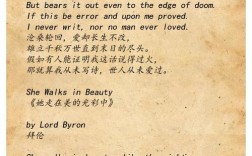 But bears it out even to the edge of doom.
If this be error and upon me proved.
I never writ, nor no man ever loved.
沧桑轮回,爱却长生不改,
雄立千秋万世直到末日的尽头。
假如有人能证明我这话说得过火,
那就算我从未写诗,世人从未爱过。
She Walks in Beauty
《她走在美的光彩中》
by Lord Byron
拜伦